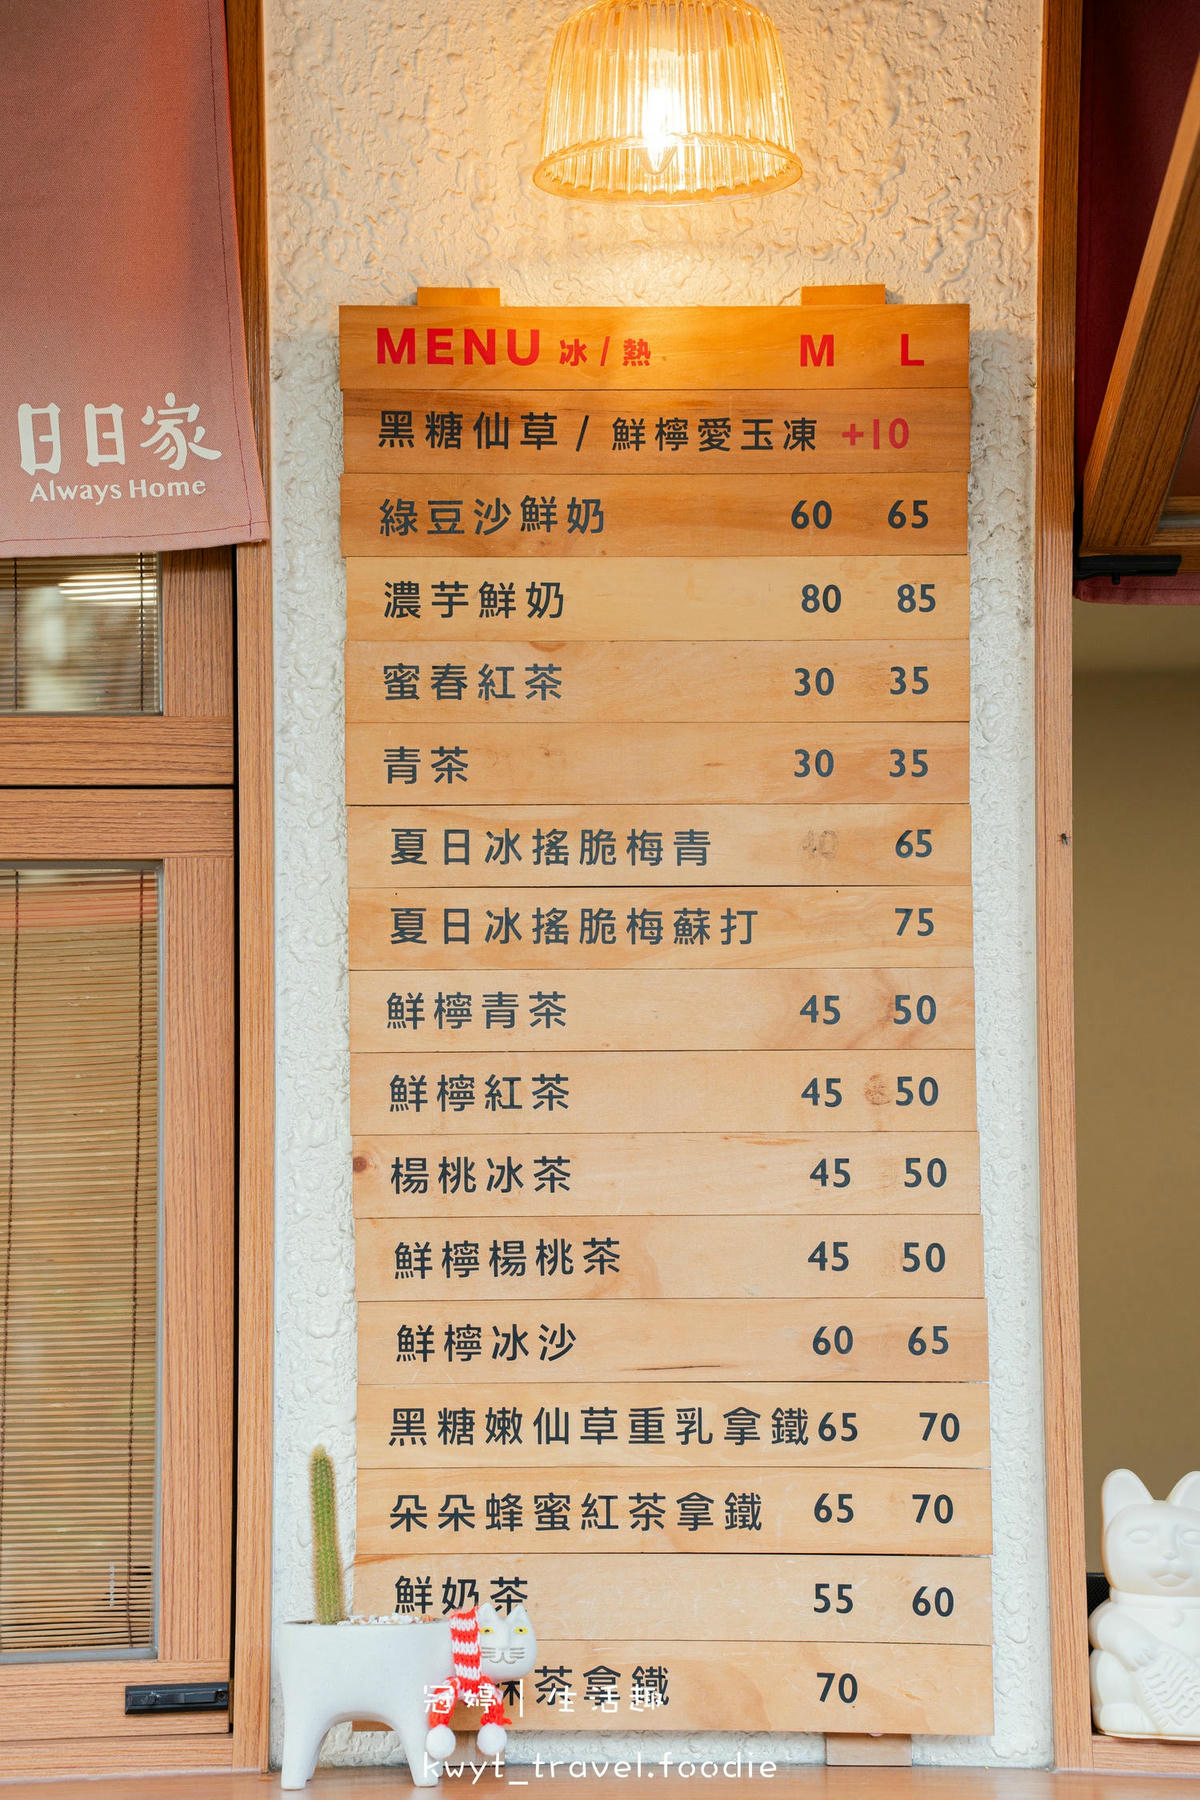 日日家
Always Home
MENU 冰/熱 M L
黑糖仙草/鮮檸愛玉凍 +10
綠豆沙鮮奶 60 65
濃芋鮮奶 80 85
蜜春紅茶 30 35
青茶 30 35
夏日冰搖脆梅青 40 65
夏日冰搖脆梅蘇打 75
鮮檸青茶 45 50
鮮檸紅茶 45 50
楊桃冰茶 45 50
鮮檸楊桃茶 45 50
鮮檸冰沙 60 65
黑糖嫩仙草重乳拿鐵 65 70
朵朵蜂蜜紅茶拿鐵 65 70
鮮奶茶 55 60
茶拿鐵 70
冠婷|生活趣
kwyt_travel.foodie